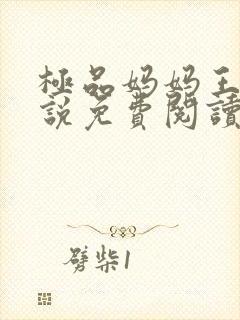 極品妈妈王
說免費閱讀
劈柴1